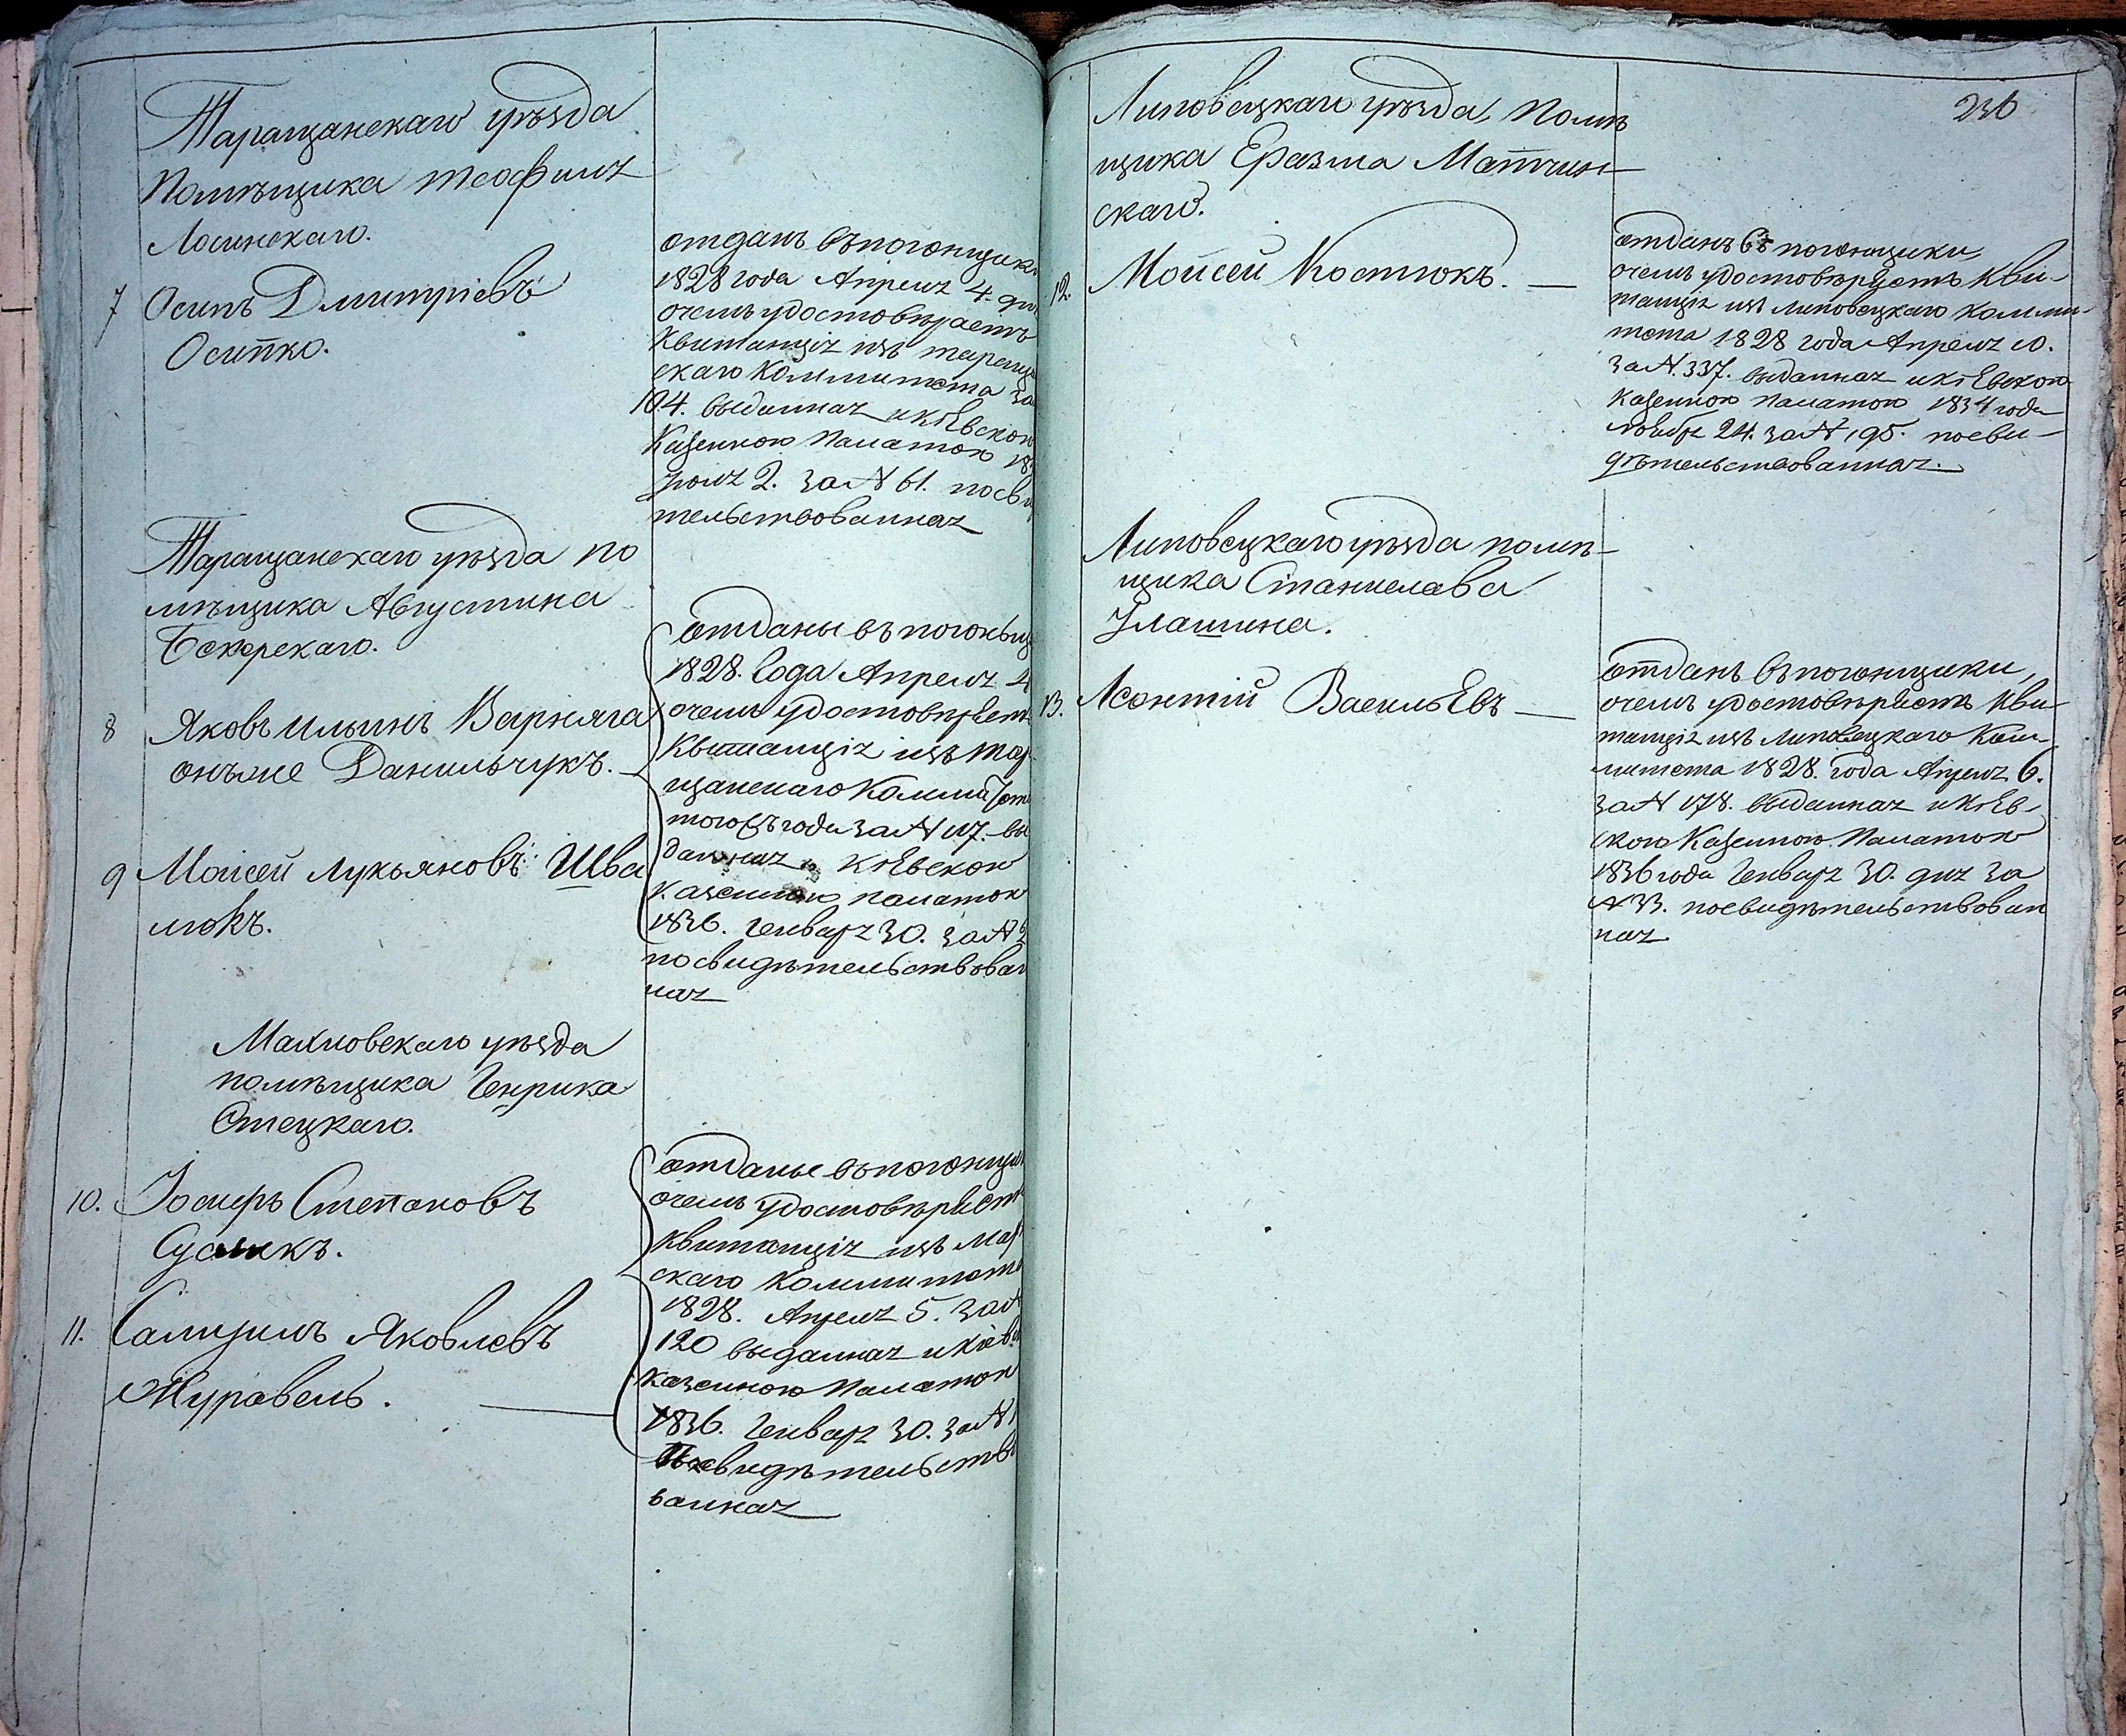 Таращанскаго уѣзда
Помѣщика Теофила
Лосинскаго.
7 Осипъ Дмитріевъ
Осипко.
отданъ въ погонщики
1828 года Апреля 4. дня
очемъ удостовѣряетъ
Квитанція изъ Таращан
скаго Коммитета за
104. выданная и кіевскою
Казенною Палатою 183
Іюля 2. за № 61. посви
тельствованная
Таращанскаго уѣзда по
мѣщика Августина
8 Яковъ Ильинъ Варняга
онъ же Данильчукъ.
9 Моисей Лукьяновъ Шва
люкъ.
отданы въ погоньщ
1828. Года Апреля 4
очемъ удостовѣряетъ
Квитанція изъ Тар
щанскаго Коммитет
того жъ года за № 117. вы
данная и кіевскою
Казенною палатою
1836. Генваря 30. за №
посвидѣтельствован
ная
Махновскаго уѣзда
помѣщика Генрика
10. Іосифъ Степановъ
11. Самуилъ Яковлевъ
Журавель.
отданые въ погонщи
очемъ удостовѣряетъ
квитанція изъ Мах
скаго Коммитета
1828. Апреля 5. за №
120 выданная и Кіев
казенною Палатою
1836. Генваря 30. за №
Посвидѣтельство
ванная
236
Липовецкаго уѣзда, Помѣ
щика Еразма Матчин
скаго.
12. Мойсей Костюкъ.
отданъ въ погонщики
очемъ удостовѣряетъ Кви-
танція изъ Липовецкаго Комми-
тета 1828 года Апреля 10.
за №. 337. выданная и кіевскою
Казенною Палатою 1834 года
Ноября 24. за № 195. посви-
дѣтельствованная.
Липовецкаго уѣзда помѣ-
щика Станислава
Улашина.
13. Леонтій Васильевъ
отданъ въ погонщики,
очемъ удостовѣряетъ Кви-
танція изъ Липовецкаго Ком-
митета 1828. года Апреля 6.
за № 178. выданная и кіев-
скою Казенною Палатою
1836 года Генваря 30. дня за
№ 33. посвидѣтельствован
ная